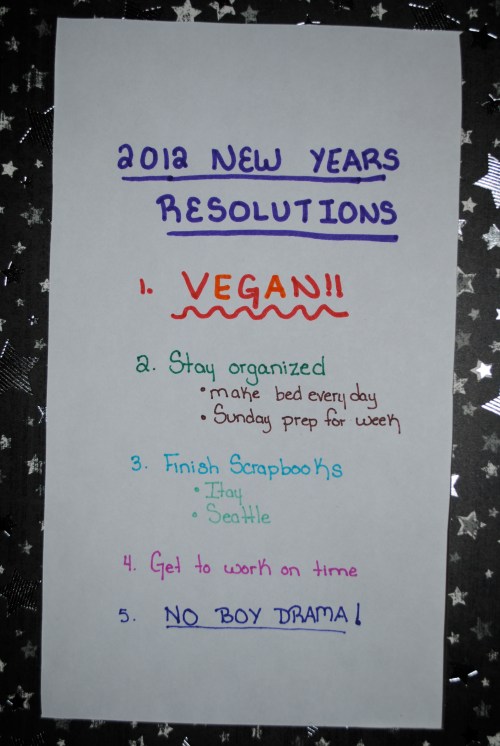 2012 NEW YEARS
RESOLUTIONS
1. VEGAN!!
2. Stay organized
• make bed every day
• Sunday prep for week
3. Finish Scrapbooks
• Itay
• Seattle
4. Get to work on time
5. NO BOY DRAMA!